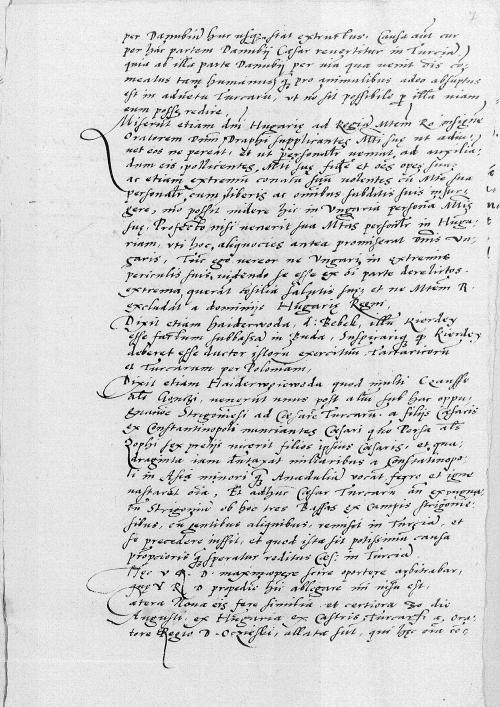 7
per Danubiu hinc usq; stat extructus. Causa aut cur
per hac partem Danubij Cæsar revertitur in Turcia,
quia ab illa parte Danubij per via qua venit ois co-
meatus tam humanus q pro animalibus adeo absuptus
est in advetu Turcaru, ut no sit possibile p illa viam
eum posse redire.
Miserut etiam dni Hugariæ ad Regia Mtem Ro insigne
Oratorem Dnm Draphi supplicantes Mti suæ ne adiu-
vet eos ne pereat. Et ut personalr veniat ad auxilia
dum eis pollicentes Mti suæ fide et oes opes suas
ac etiam extremu conatu suu volentes cu Mte sua
personalr cum liberis ac omnibus subditis suis insur-
gere, mo possit videre hic in Ungaria persona Mtis
suæ. Profecto nisi venerit sua Mtas personlr in Huga-
riam, uti hoc aliquocies antea promiserat dnis Un-
garis, Tuc ego vereor ne Ungari in extremis
periculis suis videndo se esse ex oi parte derelictos
extrema querat cosilia salutis suæ, et ne Mtem R.
excludat a dominijs Hugariæ Regni.
Dixit etiam Haiderwoda, d: Bebek, illu Kierdey
esse factum subbassa in Buda,
deberet esse ductor istoru exercituu Tartaroru
et Turcaram per Poloniam.
Dixit etiam Haiderwoda quod multi Czausse
als Gonczi, venerut unus post aliu sub hac oppu-
gnatioe Strigoniesi ad Cæsare Turcaru a filijs Cæsaris
ex Constantinopoli nunciantes Cæsari qno Persa als
Zophi sex prelijs vicerit filios ipsius Cæsaris, et qua-
draginta iam duntaxat miliaribus a Costatinopo-
li in Asia minori q Anadulia vocat ferro et igne
vastarat oia. Et adhuc Cæsar Turcaru an expugna-
tu Strigoniu ob hoc tres Bassas ex campis Strigonie-
sibus, cu gentibus aliquibus, remisit in Turcia, et
se precedere iussit, et quod ista sit potissima causa
propcioris q speratur reditus Cæs: in Turcia.
Hæc V R D. maxmopere scire oportere arbitrabar,
V R D propedie hic ablegare mi visu est,
Cætera Nova eis fere similia et certiora 30 die
Augusti, ex Hugaria ex Castris Turcaru a Ora-
tore Regio D. Oczieski, allata sut, qui hæc oia